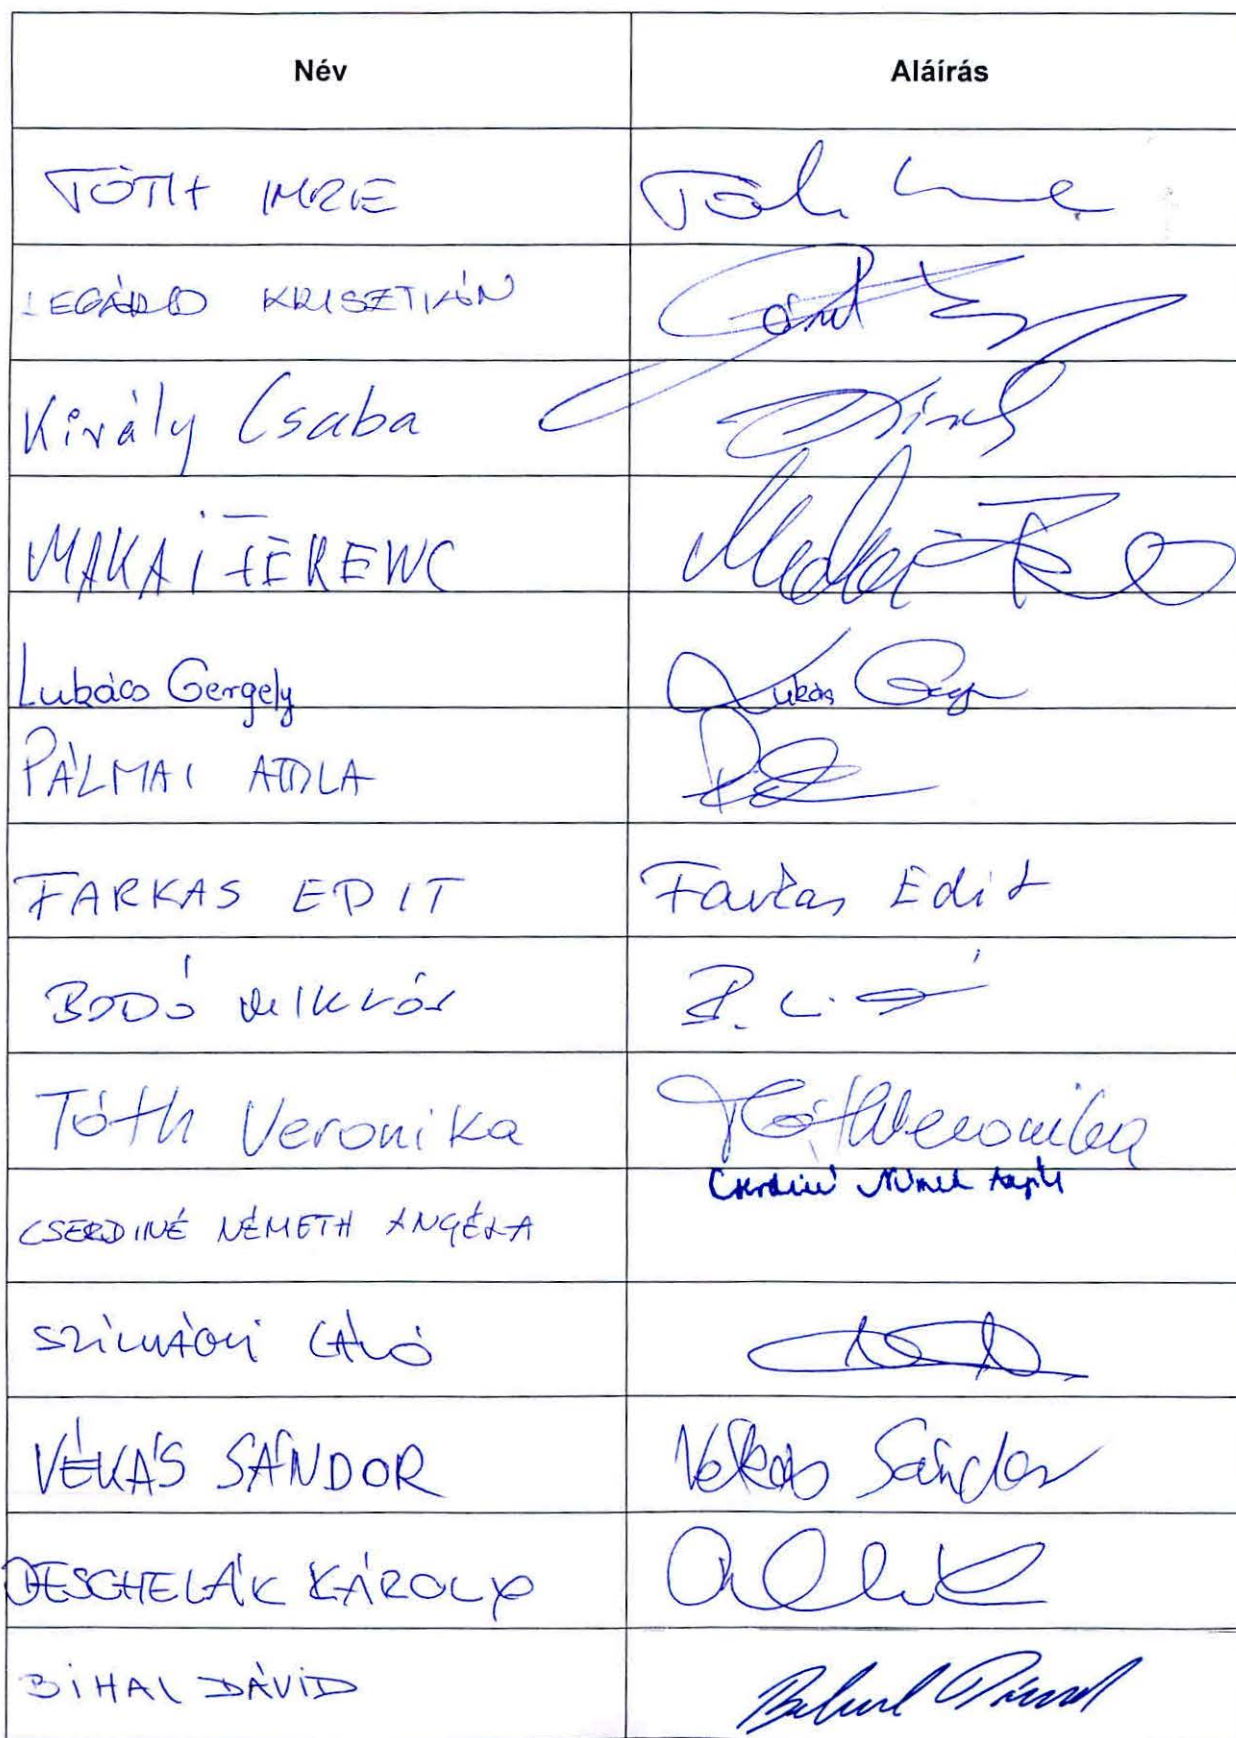 Név Aláírás
TÓTH IMRE Tóth Imre
LEGÁRD KRISZTIÁN
Király Csaba Király
MAKAI FERENC Makai
Lubács Gergely
PÁLMAI ATTILA
FARKAS EDIT Farkas Edit
BODÓ MIKLÓS
Tóth Veronika Tóth Veronika
CSERDINÉ NÉMETH ANGÉLA Cserdiné Németh Angéla
LÁSZLÓ
VÉKÁS SÁNDOR Vékás Sándor
DESCHELÁK KÁROLY
BIHAL DÁVID Bihal Dávid